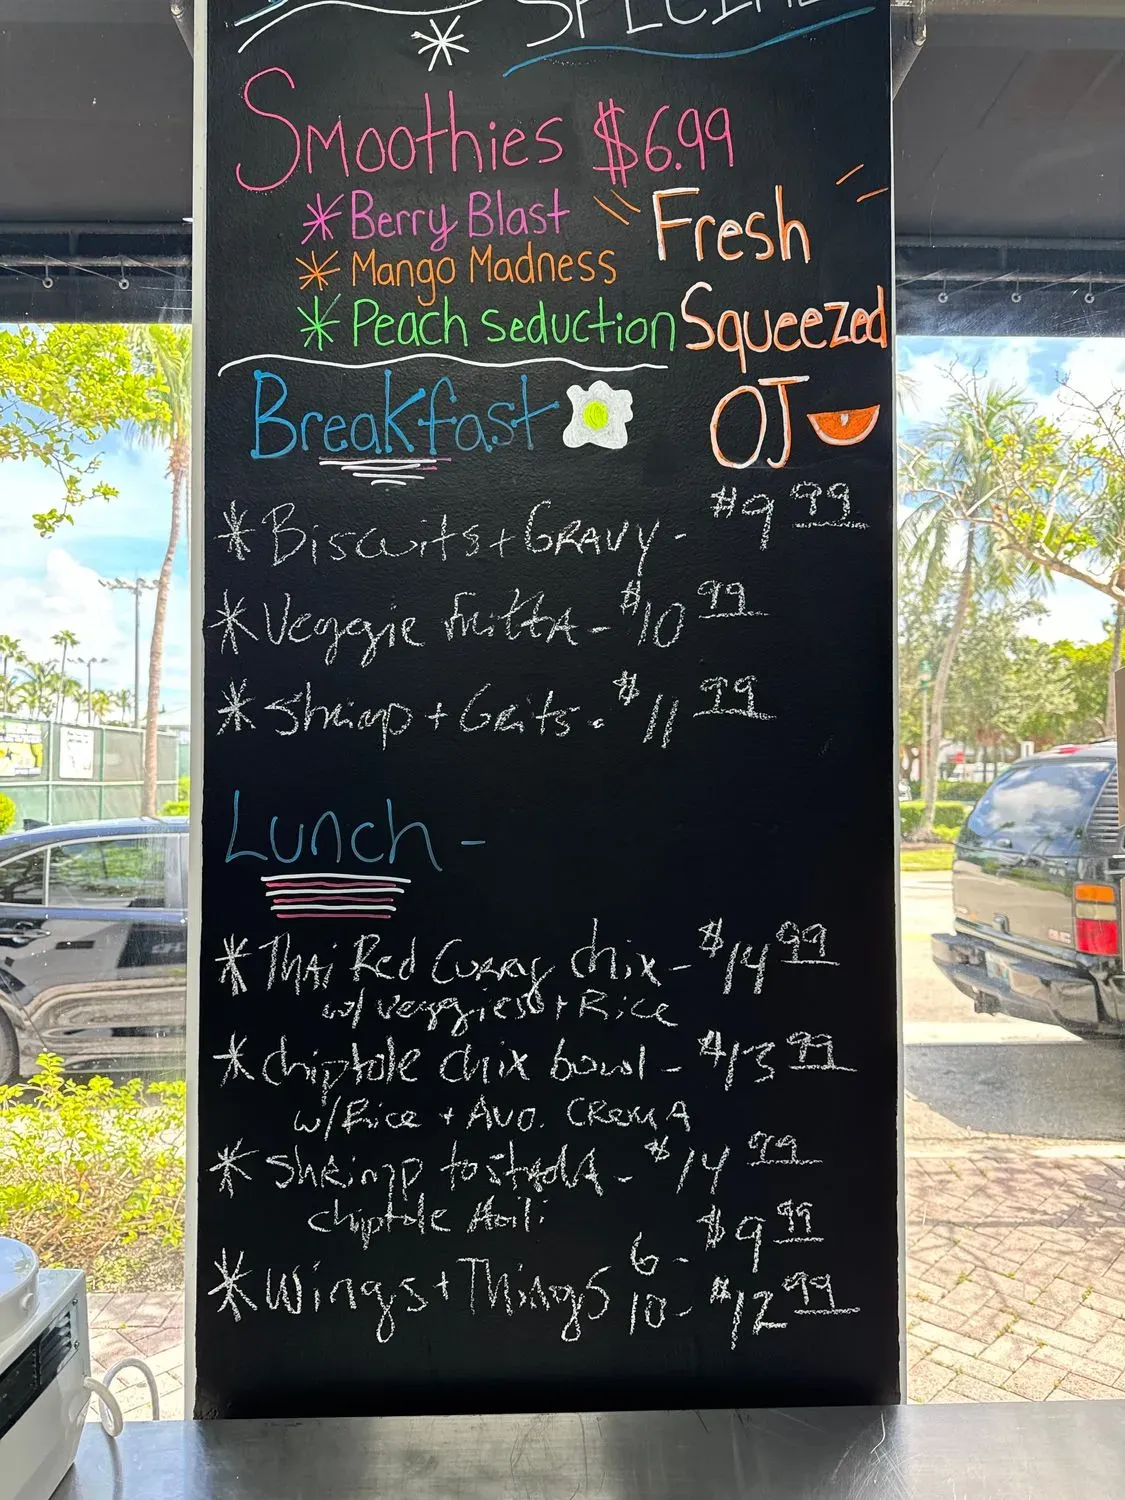 SPECIAL
Smoothies $6.99
* Berry Blast
* Mango Madness
* Peach seduction
Fresh
Squeezed
OJ
Breakfast
* Biscuits + GRAVY - $9 99
* Veggie frittA - $10 99
* Shrimp + Grits - $11 99
Lunch -
* Thai Red Curry chix - $14 99
w/ veggies + Rice
* chiptole chix bowl - $13 99
w/ Rice + Avo. CRemA
* shrimp tostadA - $14 99
chiptole Aoil:
* Wings + Things 6 - $9 99
10 - $12 99